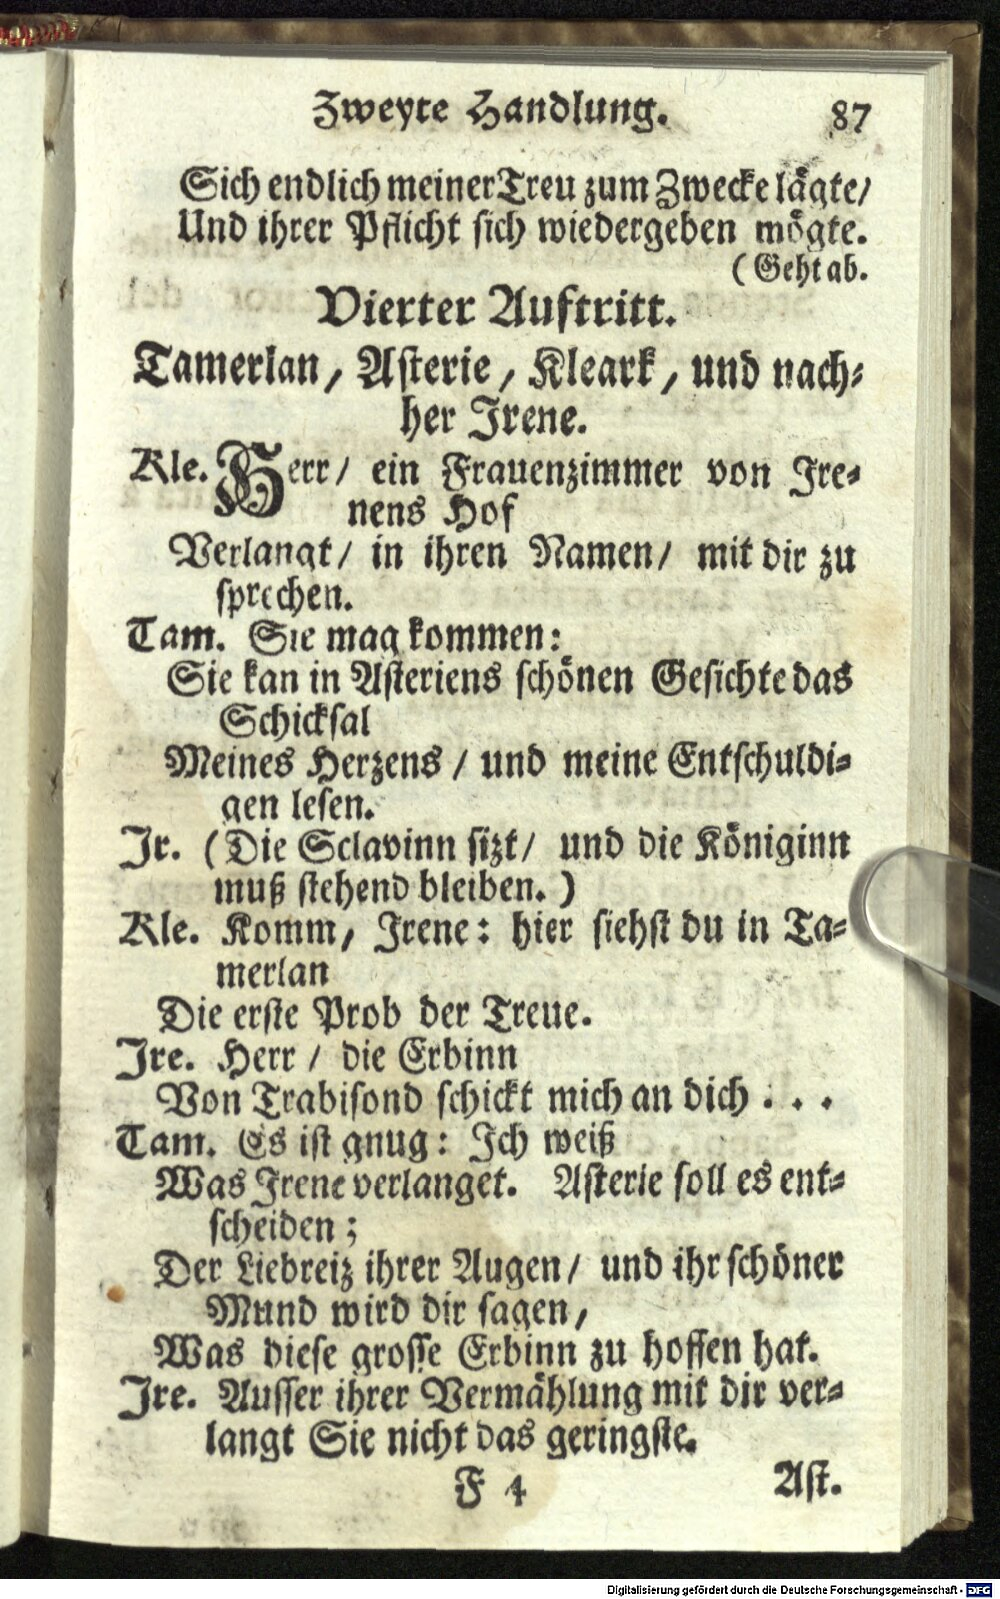 Zweyte Handlung. 87
Sich endlich meiner Treu zum Zwecke lägte/
Und ihrer Pflicht sich wiedergeben mögte.
(Geht ab.
Vierter Auftritt.
Tamerlan, Asterie, Kleark, und nach-
her Irene.
Kle. Herr/ ein Frauenzimmer von Ire-
nens Hof
Verlangt/ in ihren Namen/ mit dir zu
sprechen.
Tam. Sie mag kommen:
Sie kan in Asteriens schönen Gesichte das
Schicksal
Meines Herzens / und meine Entschuldi-
gen lesen.
Ir. (Die Sclavinn sizt/ und die Königinn
muß stehend bleiben.)
Kle. Komm, Irene: hier siehst du in Ta-
merlan
Die erste Prob der Treue.
Ire. Herr / die Erbinn
Von Trabisond schickt mich an dich . . .
Tam. Es ist gnug: Ich weiß
Was Irene verlanget. Asterie soll es ent-
scheiden;
Der Liebreiz ihrer Augen/ und ihr schöner
Mund wird dir sagen,
Was diese grosse Erbinn zu hoffen hat.
Ire. Ausser ihrer Vermählung mit dir ver-
langt Sie nicht das geringste.
F 4 Ast.
Digitalisierung gefördert durch die Deutsche Forschungsgemeinschaft - DFG